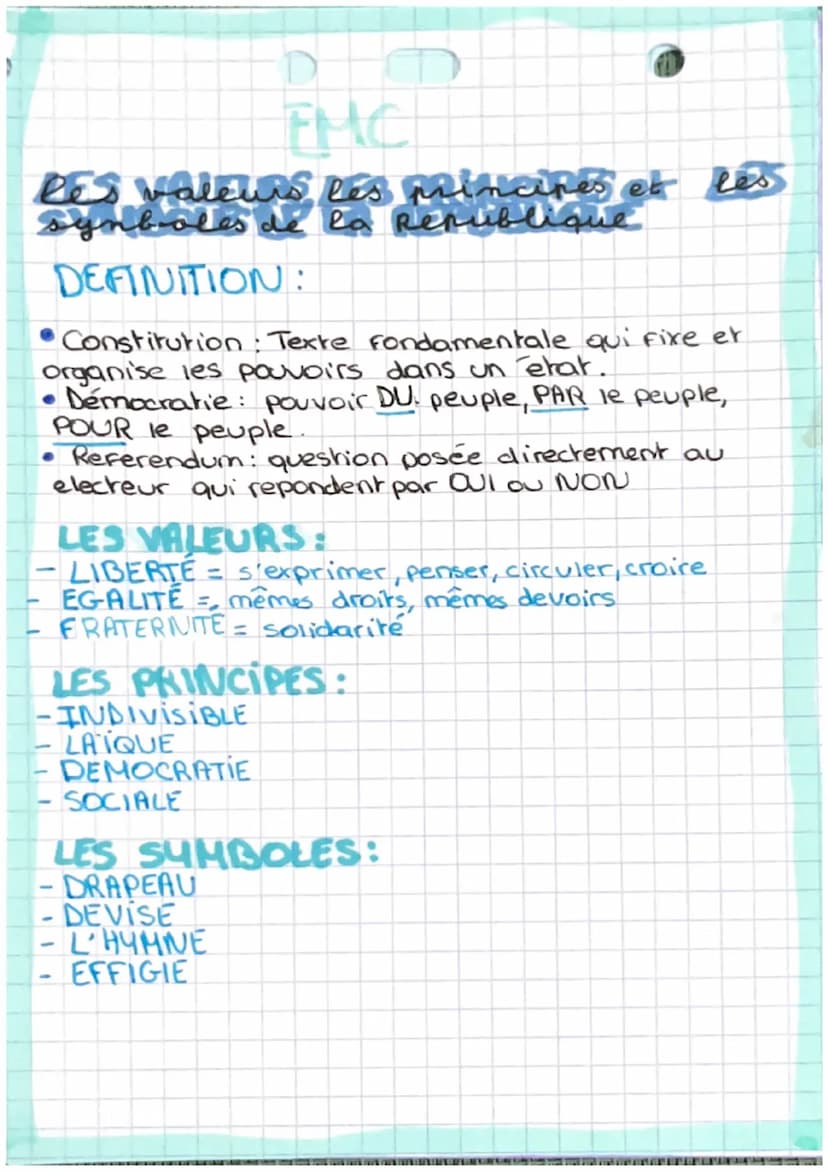 EMC
les valeurs les principes et les
symboles de la République
DEFINITION :
• Constitution : Texte fondamentale qui fixe et
organise les pouvoirs dans un état.
• Démocratie : pouvoir DU peuple, PAR le peuple,
POUR le peuple.
• Referendum : question posée directement au
electeur qui repondent par OUI ou NON
LES VALEURS :
- LIBERTÉ = s'exprimer, penser, circuler, croire
- EGALITÉ = mêmes droits, mêmes devoirs
- FRATERNITÉ = solidarité
LES PRINCIPES :
- INDIVISIBLE
- LAÏQUE
- DEMOCRATIE
- SOCIALE
LES SYMBOLES :
- DRAPEAU
- DEVISE
- L'HYMNE
- EFFIGIE